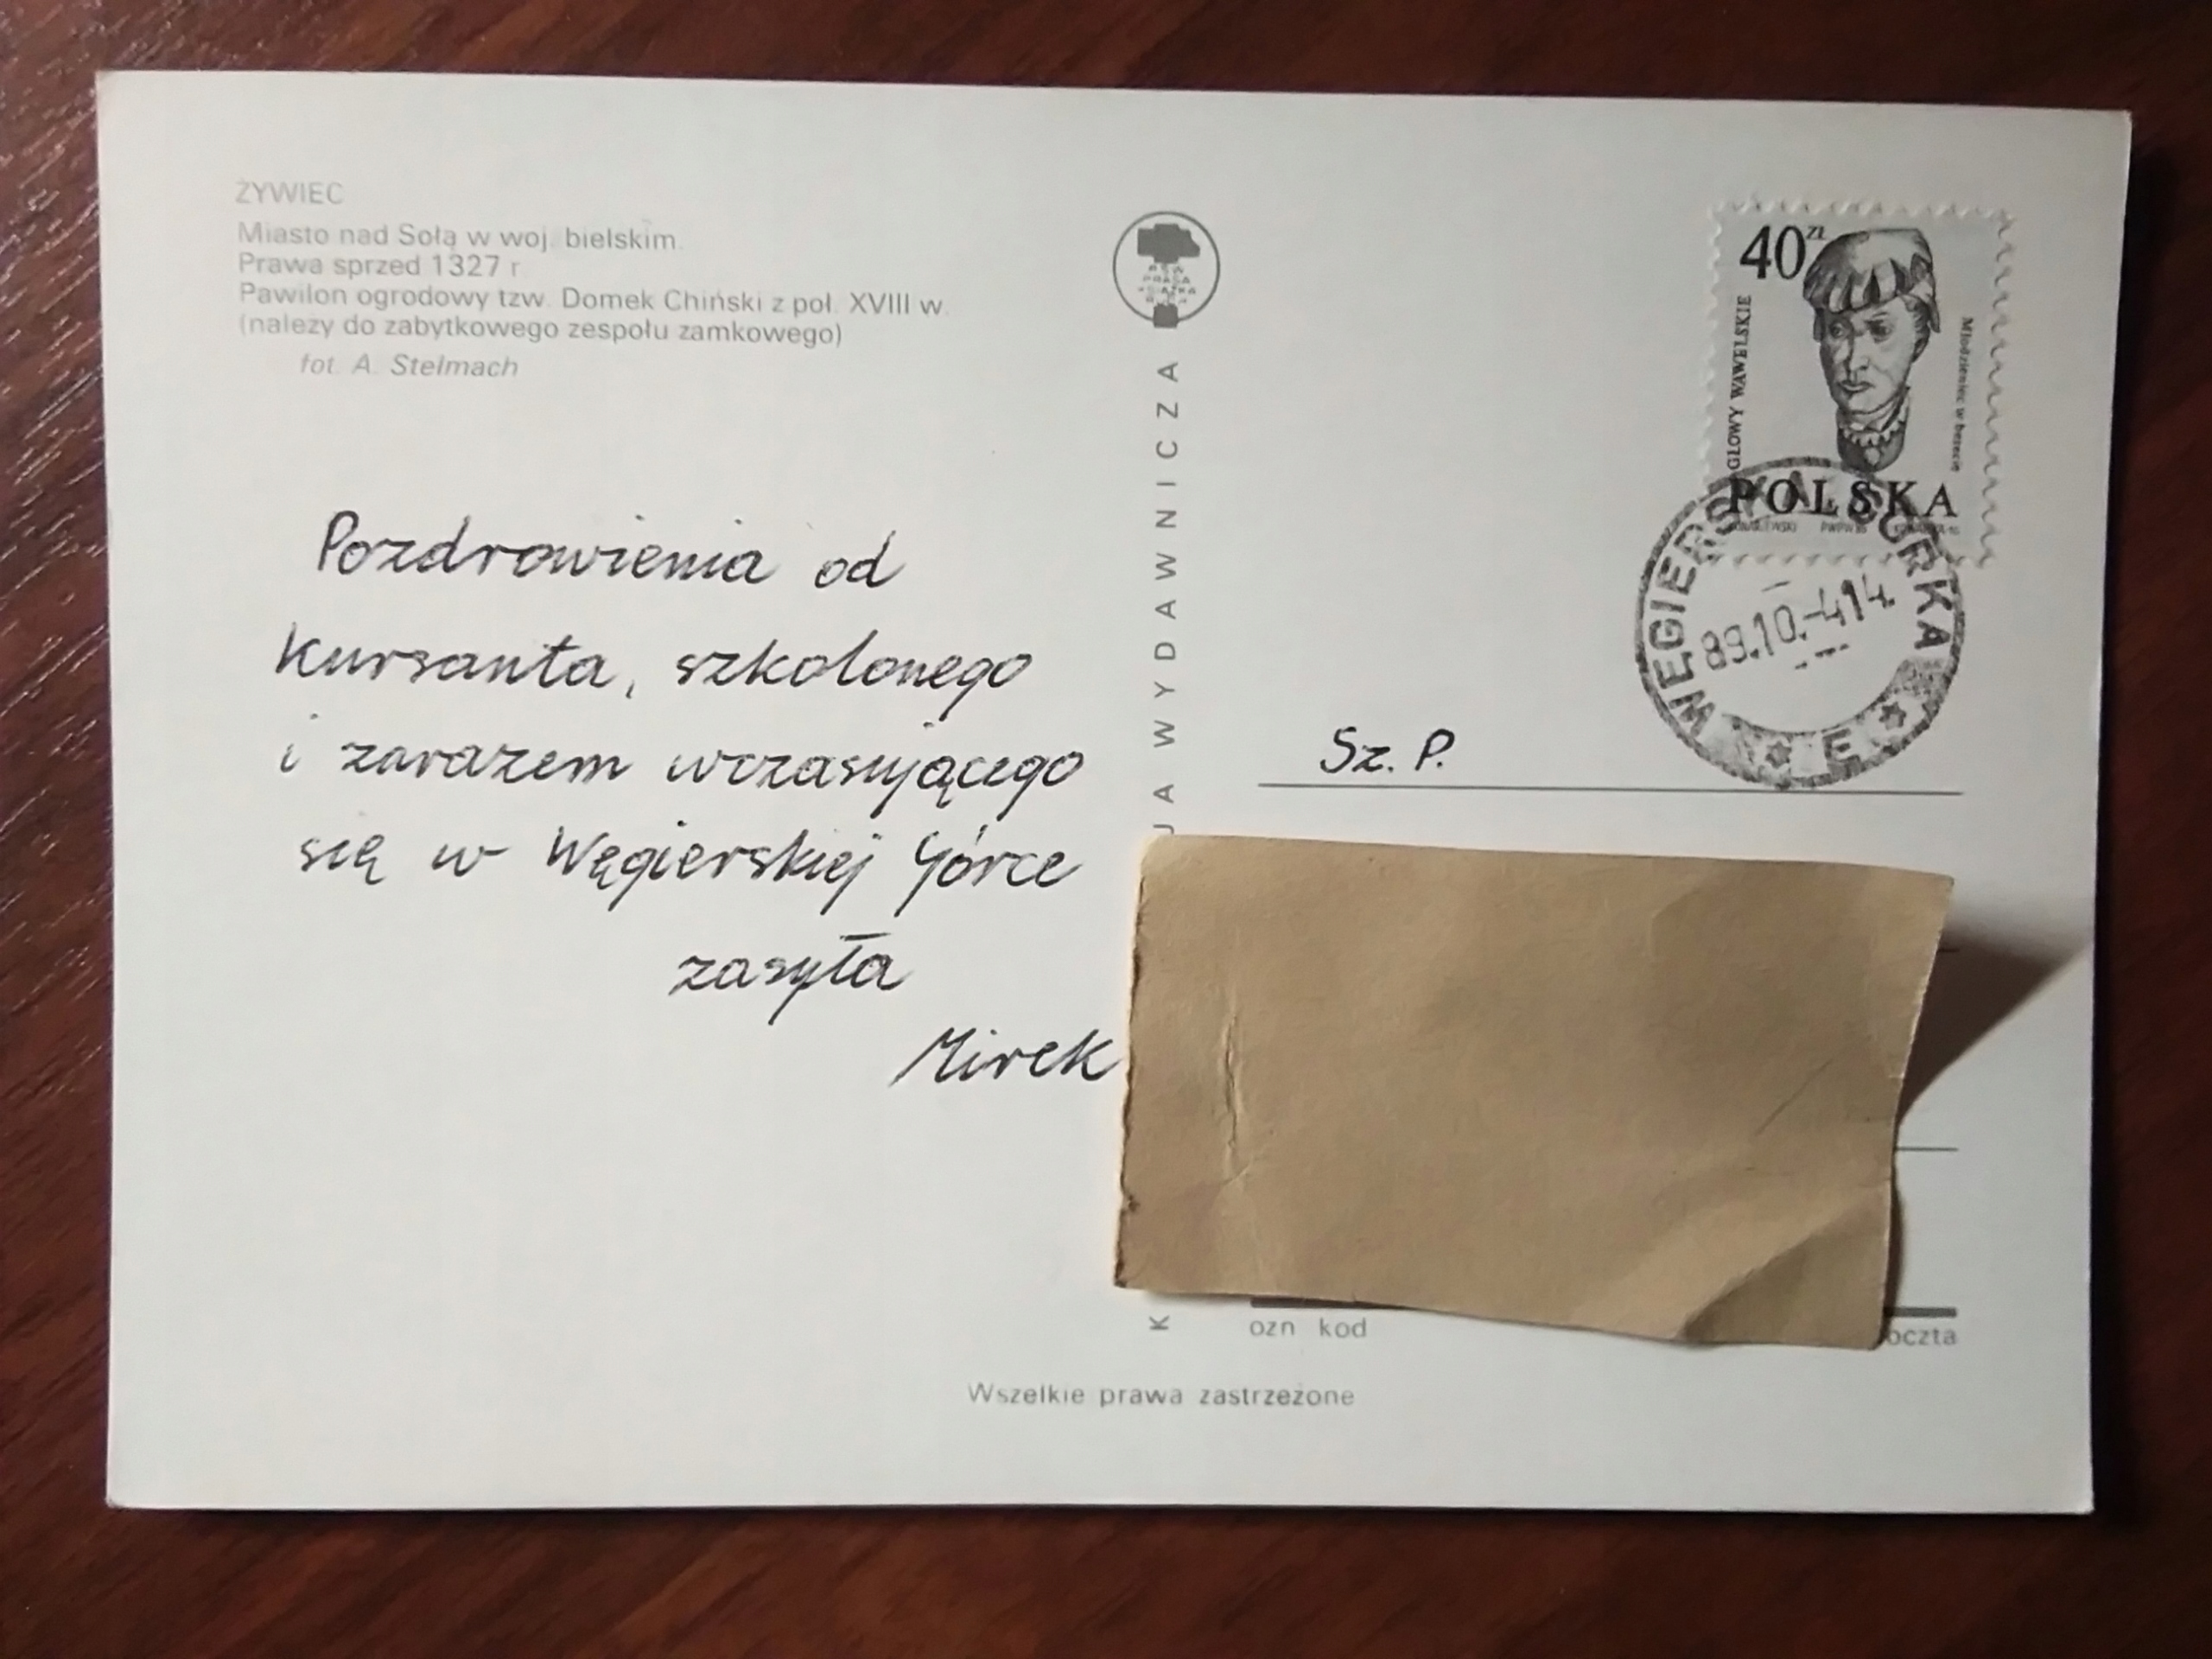 ŻYWIEC
Miasto nad Sołą w woj. bielskim.
Prawa sprzed 1327 r
Pawilon ogrodowy tzw. Domek Chiński z poł. XVIII w.
(należy do zabytkowego zespołu zamkowego)
fot. A. Stelmach
Pozdrowienia od
Kursanta, szkolonego
i zarazem wczasującego
się w Węgierskiej Górce
zasyła
Mirek
K
JA WYDAWNICZA
40 zł
GŁOWY WAWELSKIE
Młodzieniec w berecie
POLSKA
WĘGIERSKA GÓRKA
89.10.-4.14.
E
Sz. P.
ozn kod
oczta
Wszelkie prawa zastrzeżone